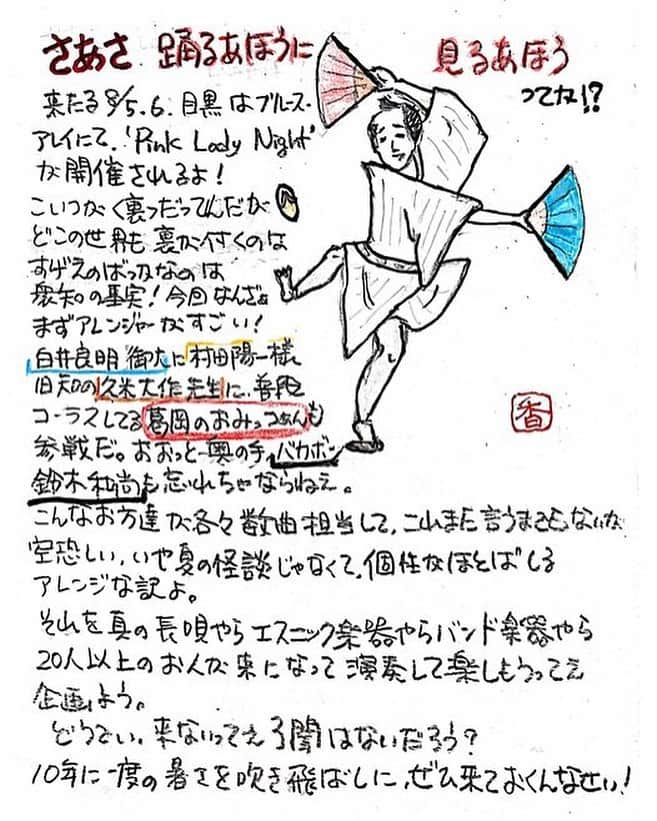 さあさ 踊るあほうに 見るあほう
ってか!?
来たる8/5.6. 目黒はブルース・
アレイにて、'Pink Lady Night'
が開催されるよ!
こいつがく裏ったってんだが
どこの世界も裏が付くのは
すげえのばっかなのは
衆知の事実! 今回なんざぁ
まずアレンジャーがすごい!
白井良明 御大に村田陽一様、
旧知の久米大作先生に、普段
コーラスしてる葛岡のおみっつぁんも
参戦だ。おおっと奥の手、バカボン
鈴木和尚も忘れちゃならねえ。
こんなお方達が各々数曲担当して、これまた言うまでもないが
空恐しい、いや夏の怪談じゃなくて、個性がほとばしる
アレンジな訳よ。
それを真の長唄やらエスニック楽器やらバンド楽器やら
20人以上のお人が来になって演奏して楽しもうってえ
企画よう。
どうでい、来ないってえ手はないだろう?
10年に一度の暑さを吹き飛ばしに、ぜひ来ておくんなせい!
香